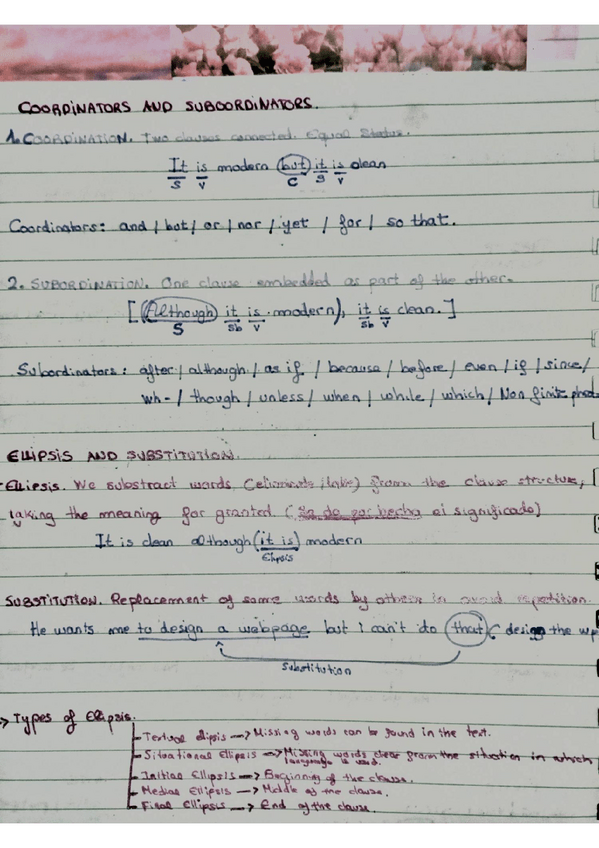 COORDINATORS AND SUBCOORDINATORS.
1. COORDINATION. Two clauses connected. Equal Status.
It is modern but it is clean
S V C S V
Coordinators: and / but / or / nor / yet / for / so that.
2. SUBORDINATION. One clause embedded as part of the other.
[(Although) it is modern), it is clean.]
S Sb V Sb V
Subordinators: after / although / as if / because / before / even / if / since /
wh- / though / unless / when / while / which / Non finite
Ellipsis AND SUBSTITUTION.
-Ellipsis. We substract words (eliminate, ) from the clause structure,
taking the meaning for granted. (Se da por hecho el significado)
It is clean although (it is) modern
Ellipsis
SUBSTITUTION. Replacement of some words by others to avoid repetition.
He wants me to design a webpage but I can't do (that) (design the wp
Substitution
-> Types of Ellipsis.
Textual ellipsis -> Missing words can be found in the text.
Situational Ellipsis -> Missing words clear from the situation in which
language is used.
Initial Ellipsis -> Beginning of the clause.
Medial Ellipsis -> Middle of the clause.
Final Ellipsis -> End of the clause.